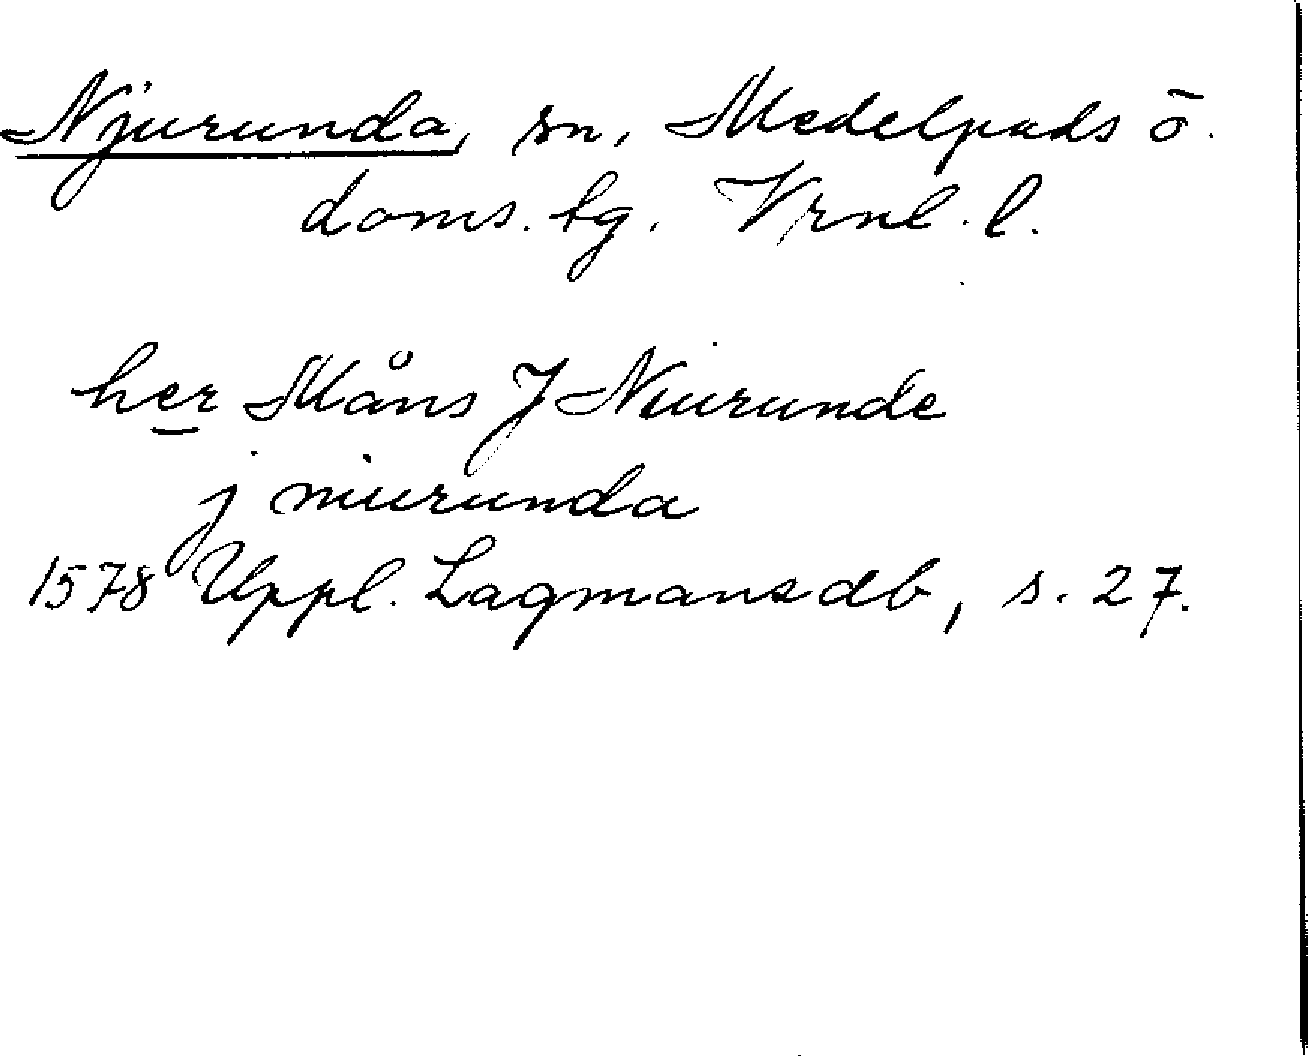 Njurunda, sn, Medelpads ö.
doms. tg. Vrnl. l.
her Måns J Niurunde
j niurunda
1578 Uppl. Lagmansdb, s. 27.